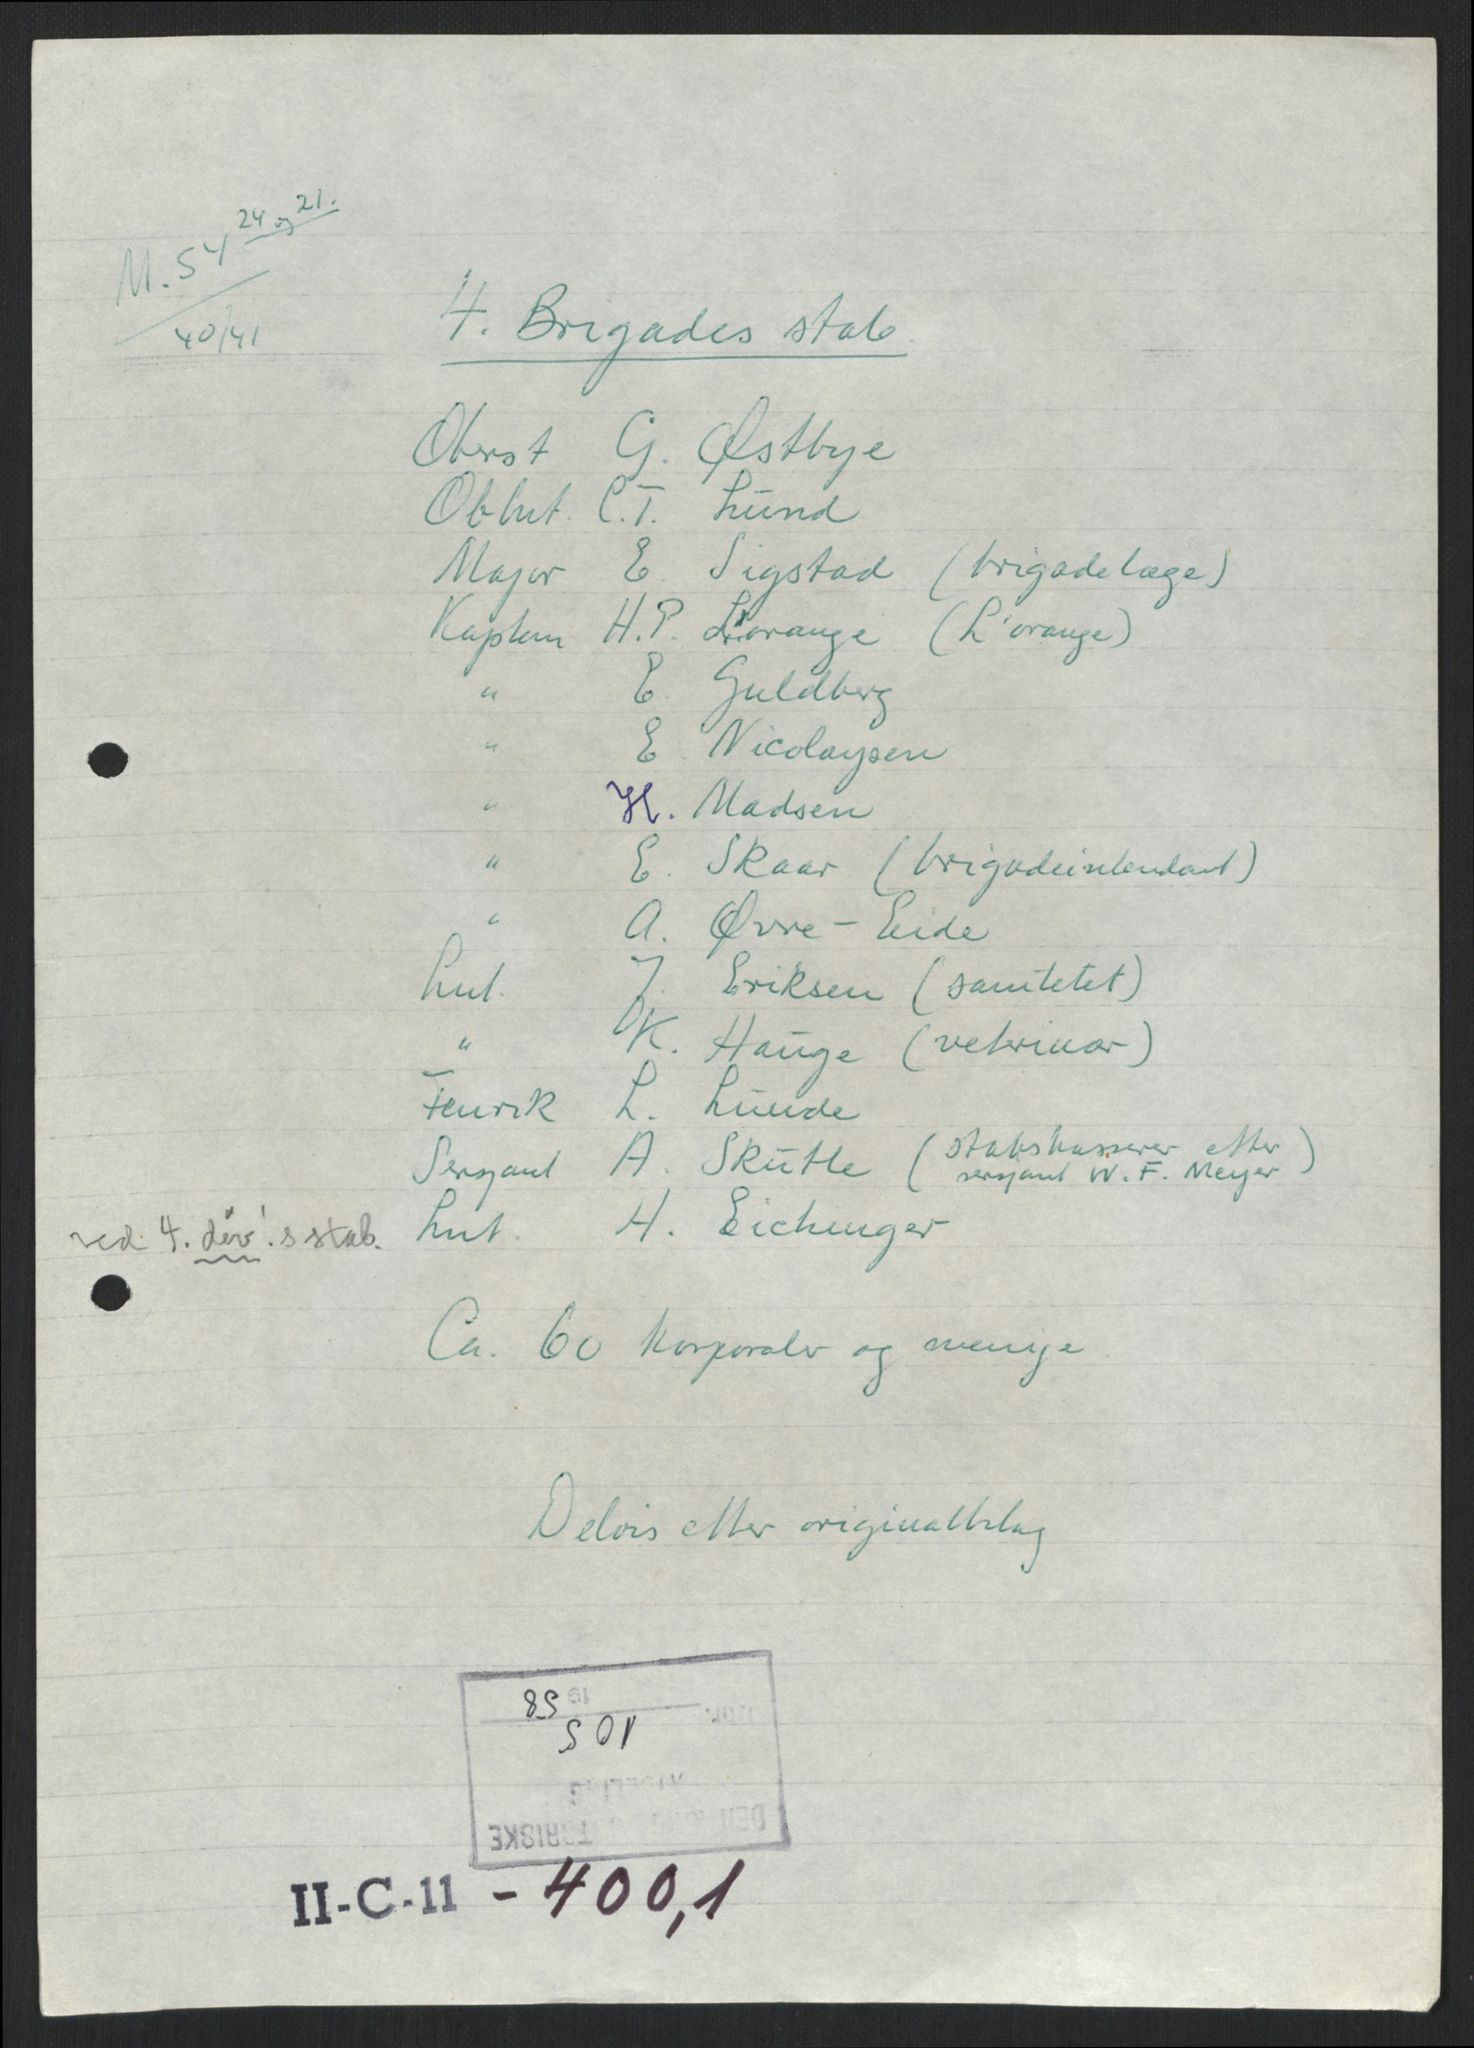 M. 54 24 og 21.
40/41
4. Brigades stab.
Oberst G. Østbye
Obltnt. C.T. Lund
Major E. Sigstad (brigadelæge)
Kaptein H.P. L'orange (L'orange)
" E. Guldberg
" E. Nicolaysen
" H. Madsen
" E. Skaar (brigadeintendant)
" A. Øvre-Eide
Lnt. J. Eriksen (sanitetet)
" K. Hauge (veterinær)
Fenrik L. Lunde
Sersjant A. Skutle (stabskasserer efter
sersjant W. F. Meyer)
ved 4. div.'s stab. Lnt. H. Eichinger
Ca. 60 korporaler og menige.
Delvis efter originalbilag
DEN KRIGSHISTORISKE
AVDELING
105
J.nr. 1958
II-C-11 - 400,1